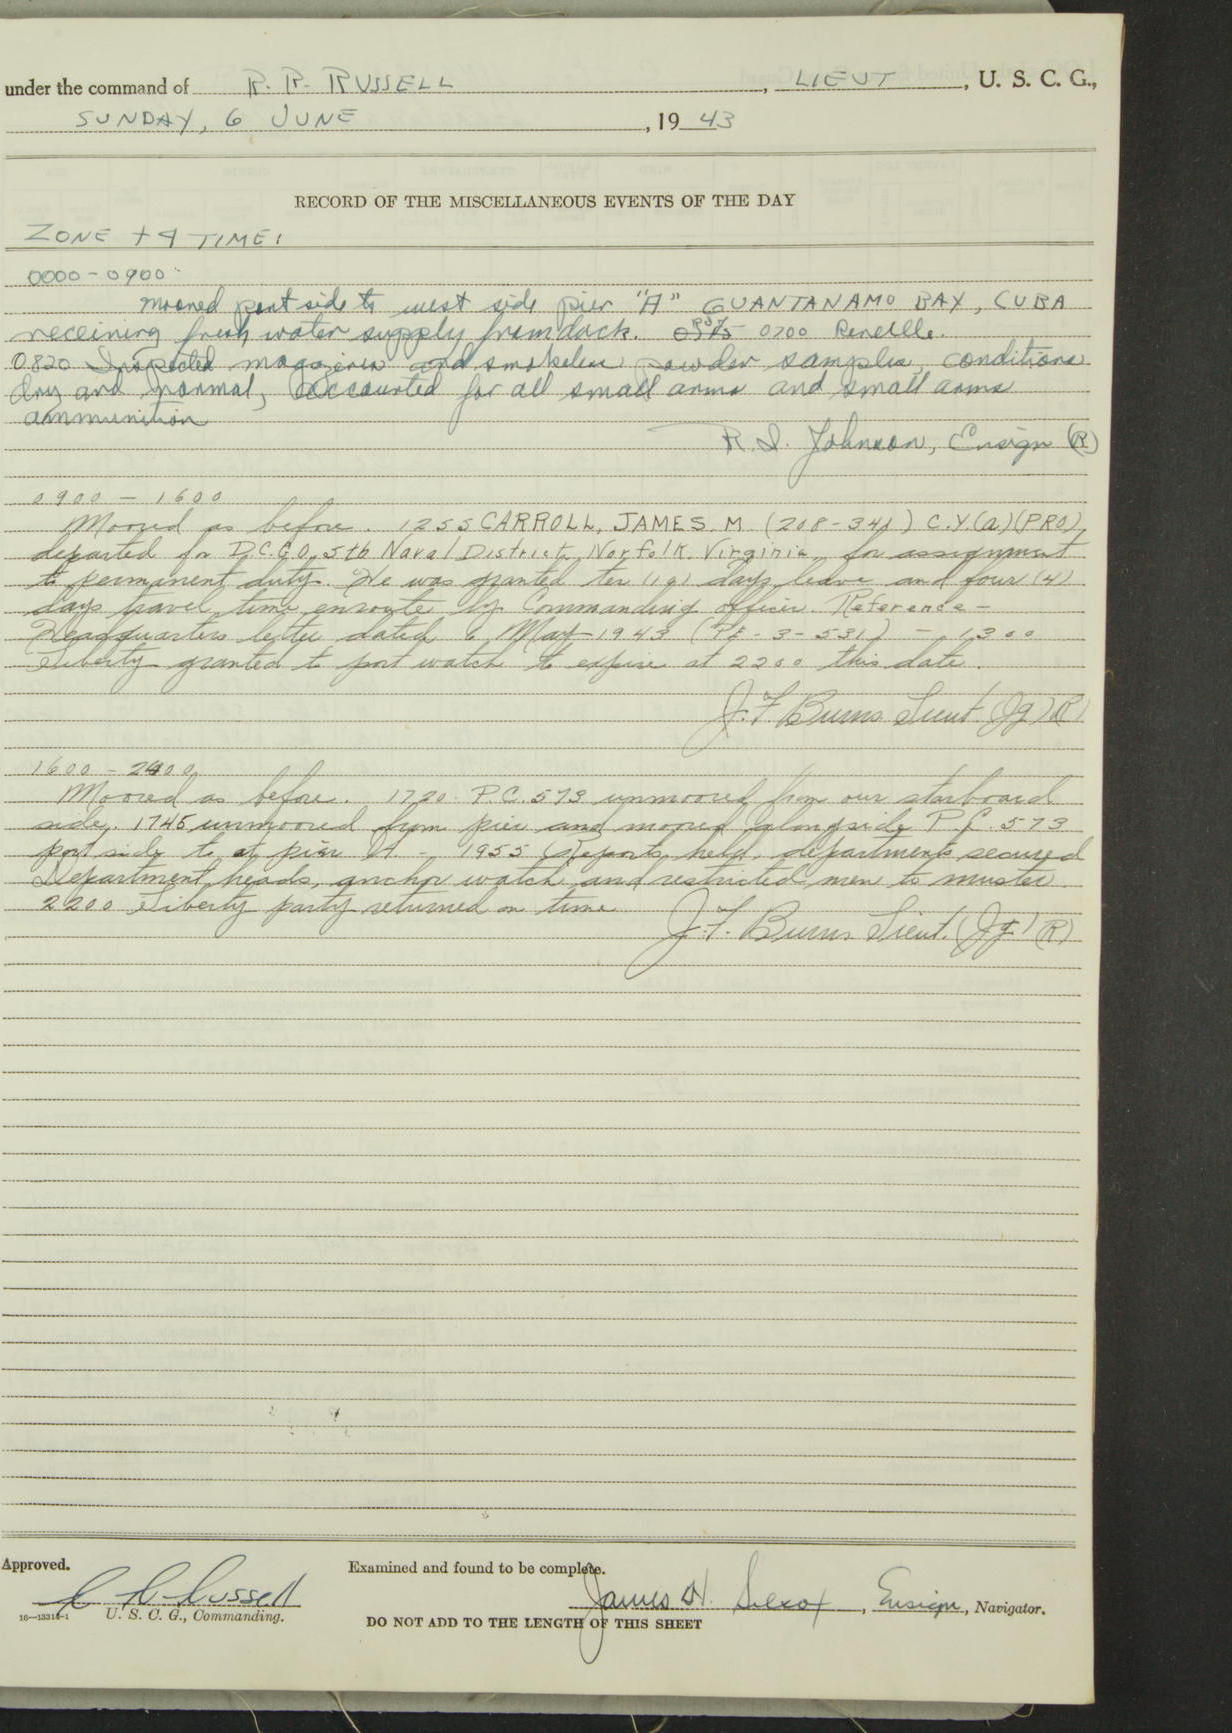 under the command of R. R. RUSSELL, LIEUT, U. S. C. G.,
SUNDAY, 6 JUNE, 1943
RECORD OF THE MISCELLANEOUS EVENTS OF THE DAY
ZONE +4 TIME:
0000-0900:
Moored port side to west side pier "A" GUANTANAMO BAY, CUBA
receiving fresh water supply from dock. 0700 Reveille.
0820 Inspected magazines and smokeless powder samples, conditions
dry and normal, accounted for all small arms and small arms
ammunition
R. S. Johnson, Ensign (R)
0900 - 1600
Moored as before. 1255 CARROLL, JAMES M. (208-341) C.Y.(a)(PRO)
departed for D.C.G.O., 5th Naval District, Norfolk, Virginia, for assignment
to permanent duty. He was granted ten (10) days leave and four (4)
days travel time enroute by Commanding officer. Reference -
Headquarters letter dated 6 May 1943 (PE-3-531) - 1300
Liberty granted to port watch to expire at 2200 this date.
J. F. Burns Lieut. (Jg) (R)
1600 - 2400
Moored as before. 1720 P.C. 573 unmoored from our starboard
side. 1745 unmoored from pier and moored alongside P.C. 573
port side to at pier A. - 1955 Reports held, departments secured
Department heads, anchor watch and restricted men to muster.
2200 Liberty party returned on time
J. F. Burns Lieut. (Jg) (R)
Approved.
Examined and found to be complete.
R R Russell
James H. Silcox, Ensign, Navigator.
16-13314-1 U. S. C. G., Commanding.
DO NOT ADD TO THE LENGTH OF THIS SHEET